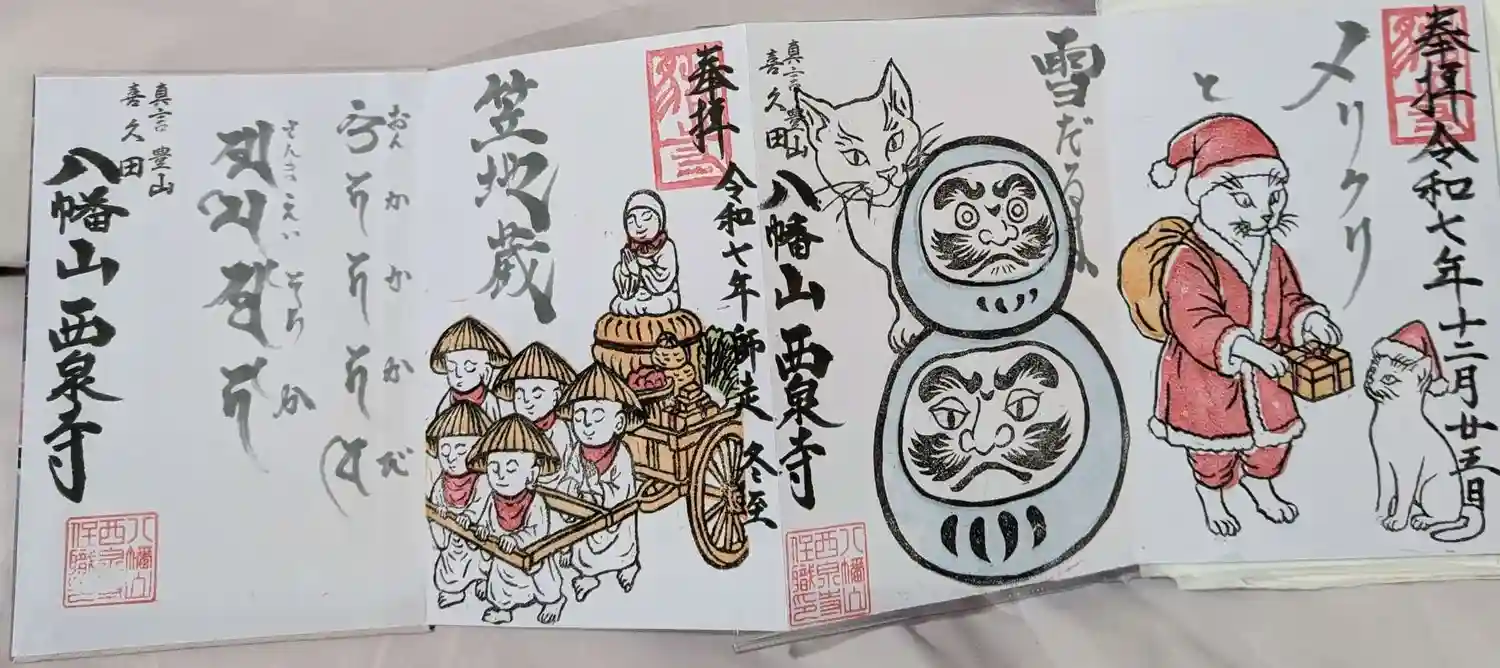 奉拝 令和七年十二月廿五日
メリクリ
と
雪だるま
真言 豊山
喜久田
八幡山 西泉寺
八幡山
西泉寺
住職印
奉拝 令和七年 師走 冬至
笠地蔵
おん か か か び
さんまえい そわ か
真言 豊山
喜久田
八幡山 西泉寺
八幡山
西泉寺
住職印